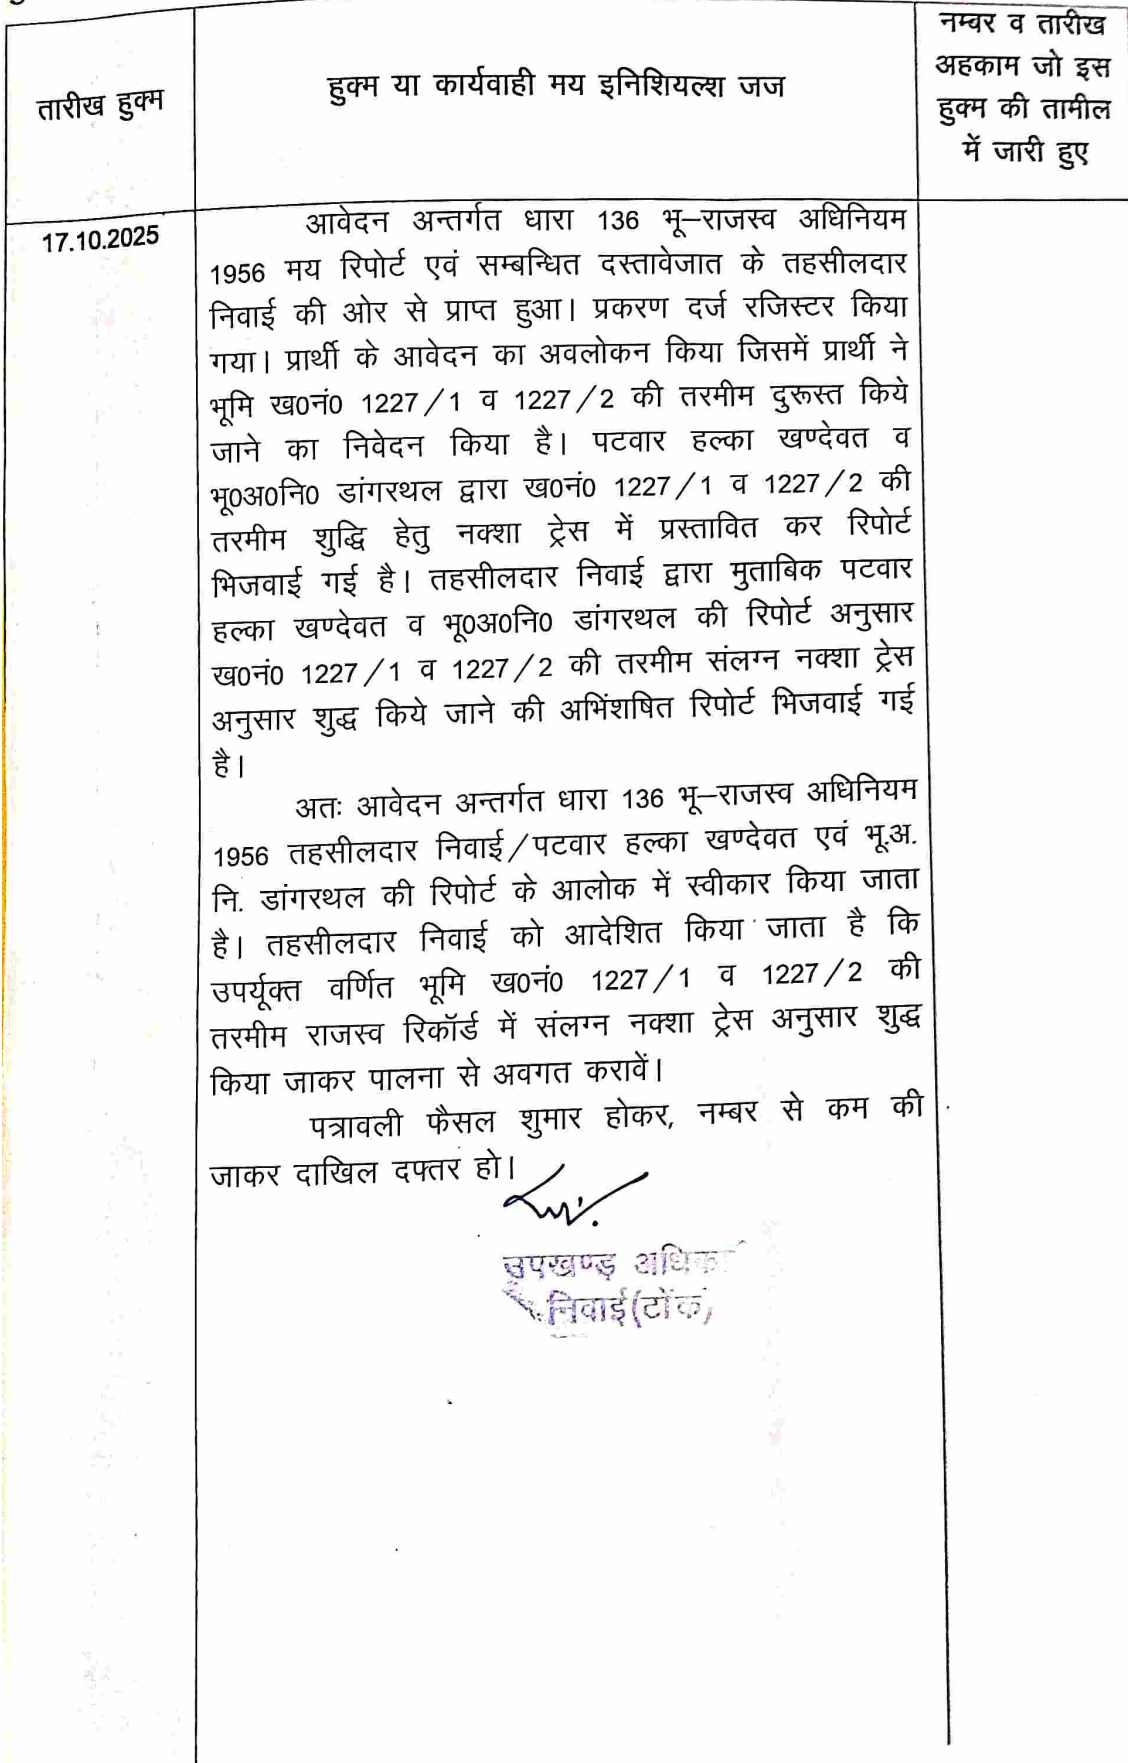 तारीख हुक्म
हुक्म या कार्यवाही मय इनिशियल्श जज
नम्बर व तारीख
अहकाम जो इस
हुक्म की तामील
में जारी हुए
17.10.2025
आवेदन अन्तर्गत धारा 136 भू–राजस्व अधिनियम
1956 मय रिपोर्ट एवं सम्बन्धित दस्तावेजात के तहसीलदार
निवाई की ओर से प्राप्त हुआ। प्रकरण दर्ज रजिस्टर किया
गया। प्रार्थी के आवेदन का अवलोकन किया जिसमें प्रार्थी ने
भूमि ख0नं0 1227/1 व 1227/2 की तरमीम दुरूस्त किये
जाने का निवेदन किया है। पटवार हल्का खण्देवत व
भू0अ0नि0 डांगरथल द्वारा ख0नं0 1227/1 व 1227/2 की
तरमीम शुद्धि हेतु नक्शा ट्रेस में प्रस्तावित कर रिपोर्ट
भिजवाई गई है। तहसीलदार निवाई द्वारा मुताबिक पटवार
हल्का खण्देवत व भू0अ0नि0 डांगरथल की रिपोर्ट अनुसार
ख0नं0 1227/1 व 1227/2 की तरमीम संलग्न नक्शा ट्रेस
अनुसार शुद्ध किये जाने की अभिंशषित रिपोर्ट भिजवाई गई
है।
अतः आवेदन अन्तर्गत धारा 136 भू–राजस्व अधिनियम
1956 तहसीलदार निवाई/पटवार हल्का खण्देवत एवं भू.अ.
नि. डांगरथल की रिपोर्ट के आलोक में स्वीकार किया जाता
है। तहसीलदार निवाई को आदेशित किया जाता है कि
उपर्यूक्त वर्णित भूमि ख0नं0 1227/1 व 1227/2 की
तरमीम राजस्व रिकॉर्ड में संलग्न नक्शा ट्रेस अनुसार शुद्ध
किया जाकर पालना से अवगत करावें।
पत्रावली फैसल शुमार होकर, नम्बर से कम की
जाकर दाखिल दफ्तर हो।
उपखण्ड़
निवाई(टोंक)